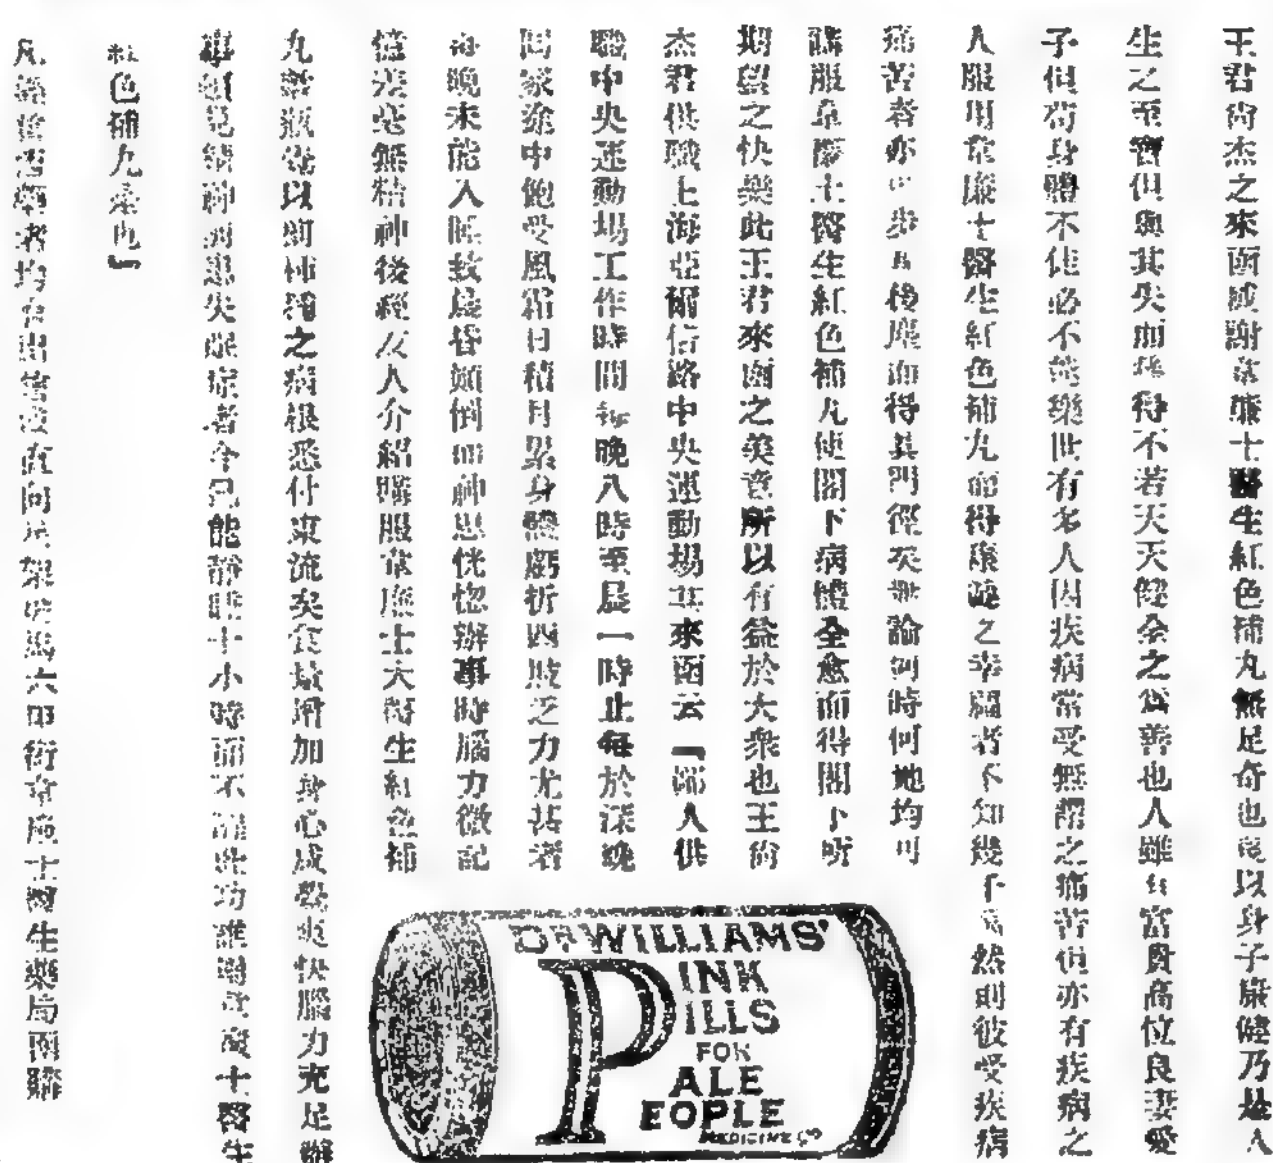 王君尙杰之來函感謝韋廉士醫生紅色補丸無足奇也竟以身子康健乃是人
生之至寶但與其失而後得不若天天健全之爲善也人雖有富貴高位良妻愛
子但苟身體不佳必不能樂世有多人因疾病常受無謂之痛苦但亦有疾病之
人服用韋廉士醫生紅色補丸而得康健之幸福者不知幾千萬然則彼受疾病
痛苦者亦可步其後塵而得其門徑矣無論何時何地均可
購服韋廉士醫生紅色補丸使閣下病體全愈而得閣下所
期望之快樂此王君來函之美意所以有益於大衆也王尙
杰君供職上海亞爾信路中央運動場其來函云『鄙人供
職中央運動場工作時間每晚八時至晨一時止每於深晚
回家途中飽受風霜日積月累身體虧折四肢乏力尤甚者
每晚未能入睡致晨昏顛倒而神思恍惚辦事時腦力微記
憶衰毫無精神後經友人介紹購服韋廉士大醫生紅色補
丸數瓶覺以前種種之病根悉付東流矣食量增加身心成覺爽快腦力充足辦
事頓見精神前患失眠症者今已能靜睡十小時而不醒此功誰歟韋廉士醫生
紅色補丸是也』
凡經售西藥者均有出售或直向上海 六十 街韋廉士醫生藥局函購
DR WILLIAMS'
PINK
PILLS
FOR
PALE
PEOPLE
MEDICINE CO